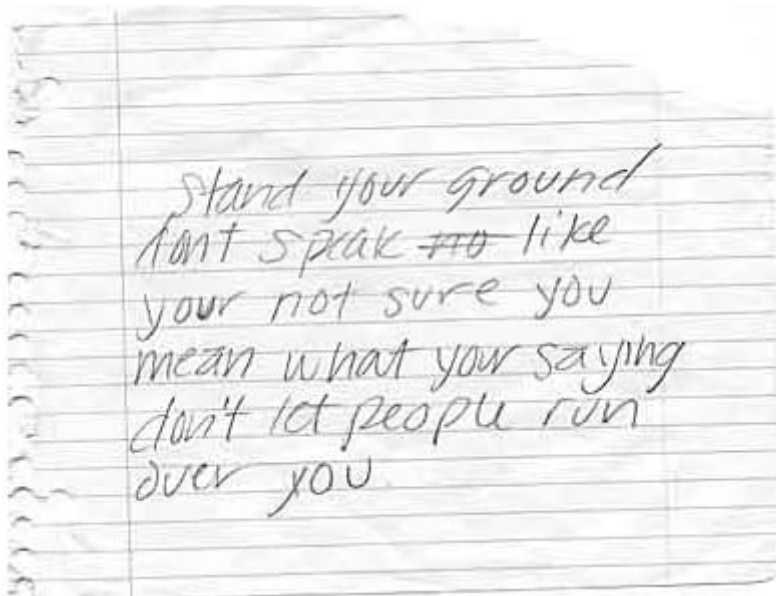 Stand your ground
dont speak no like
your not sure you
mean what your saying
don't let people run
over you